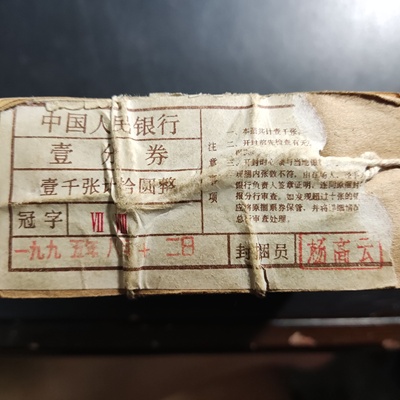 中国人民银行
壹分券
壹千张计拾圆整
冠字 Ⅶ
一九九五年八 十二日
封捆员 杨高云
注意事项
一、本捆共计壹千张
二、开封前先检查有无
三、开封时 要与当地
捆内张数不符,由在场人
银行负责人签章证明,连同原封
报分行审查。如发现超过十张的
应将原捆票券保管,并将
总行审查处理。